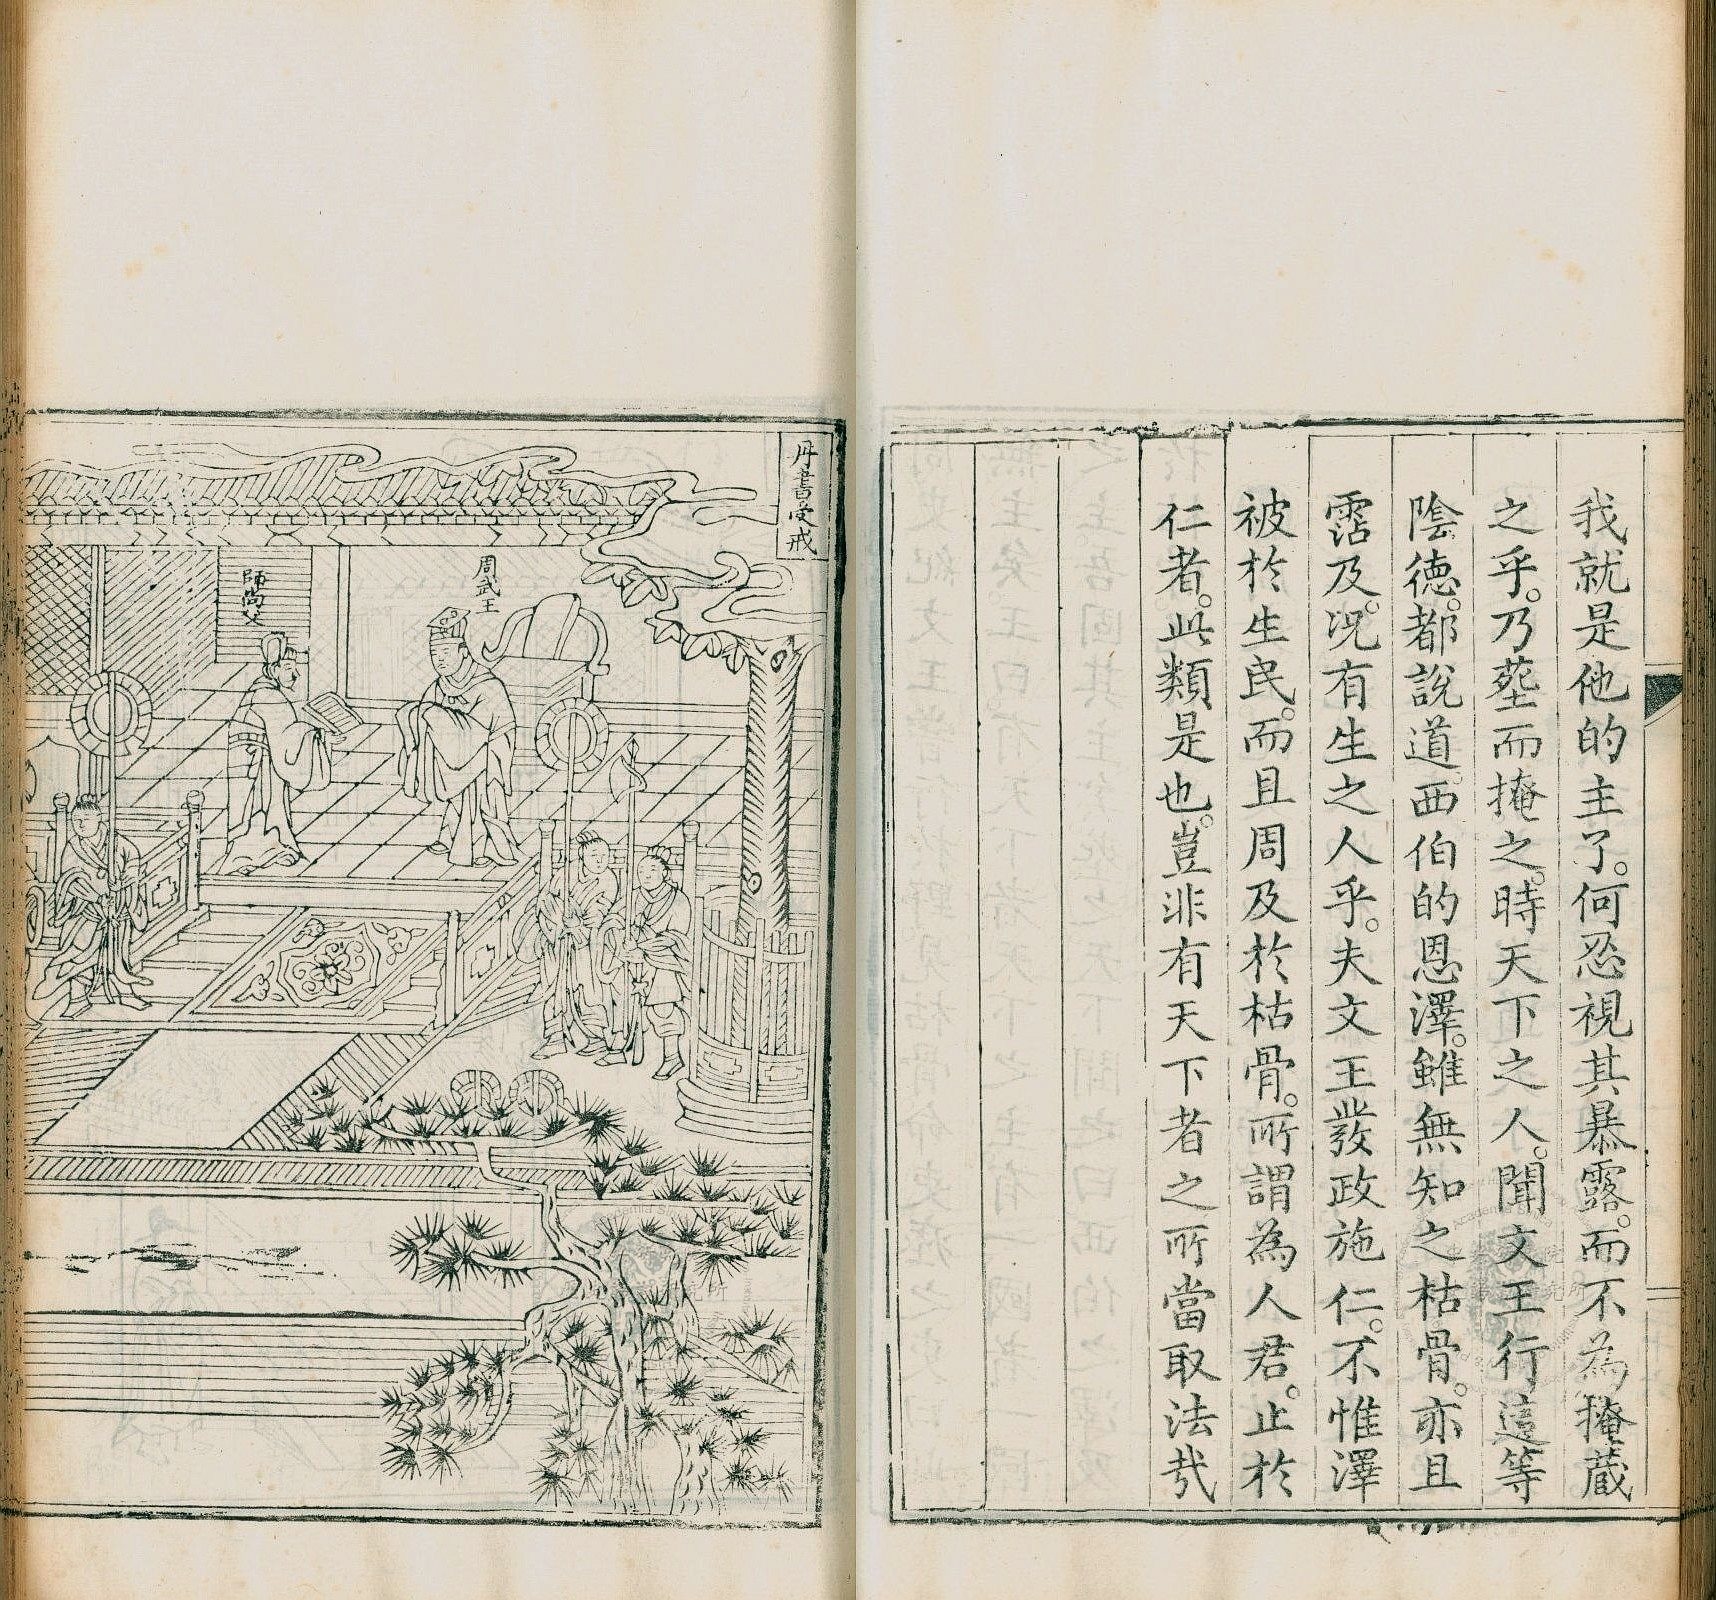 我就是他的主了。何忍視其暴露。而不為掩蔵
之乎。乃塟而掩之。時天下之人。聞文王行這等
隂德。都說道西伯的恩澤。雖無知之枯骨。亦且
霑及。况有生之人乎。夫文王發政施仁。不惟澤
被於生民。而且周及於枯骨。所謂為人君。止於
仁者。此類是也。豈非有天下者之所當取法㦲
丹書受戒
周武王
師尚父